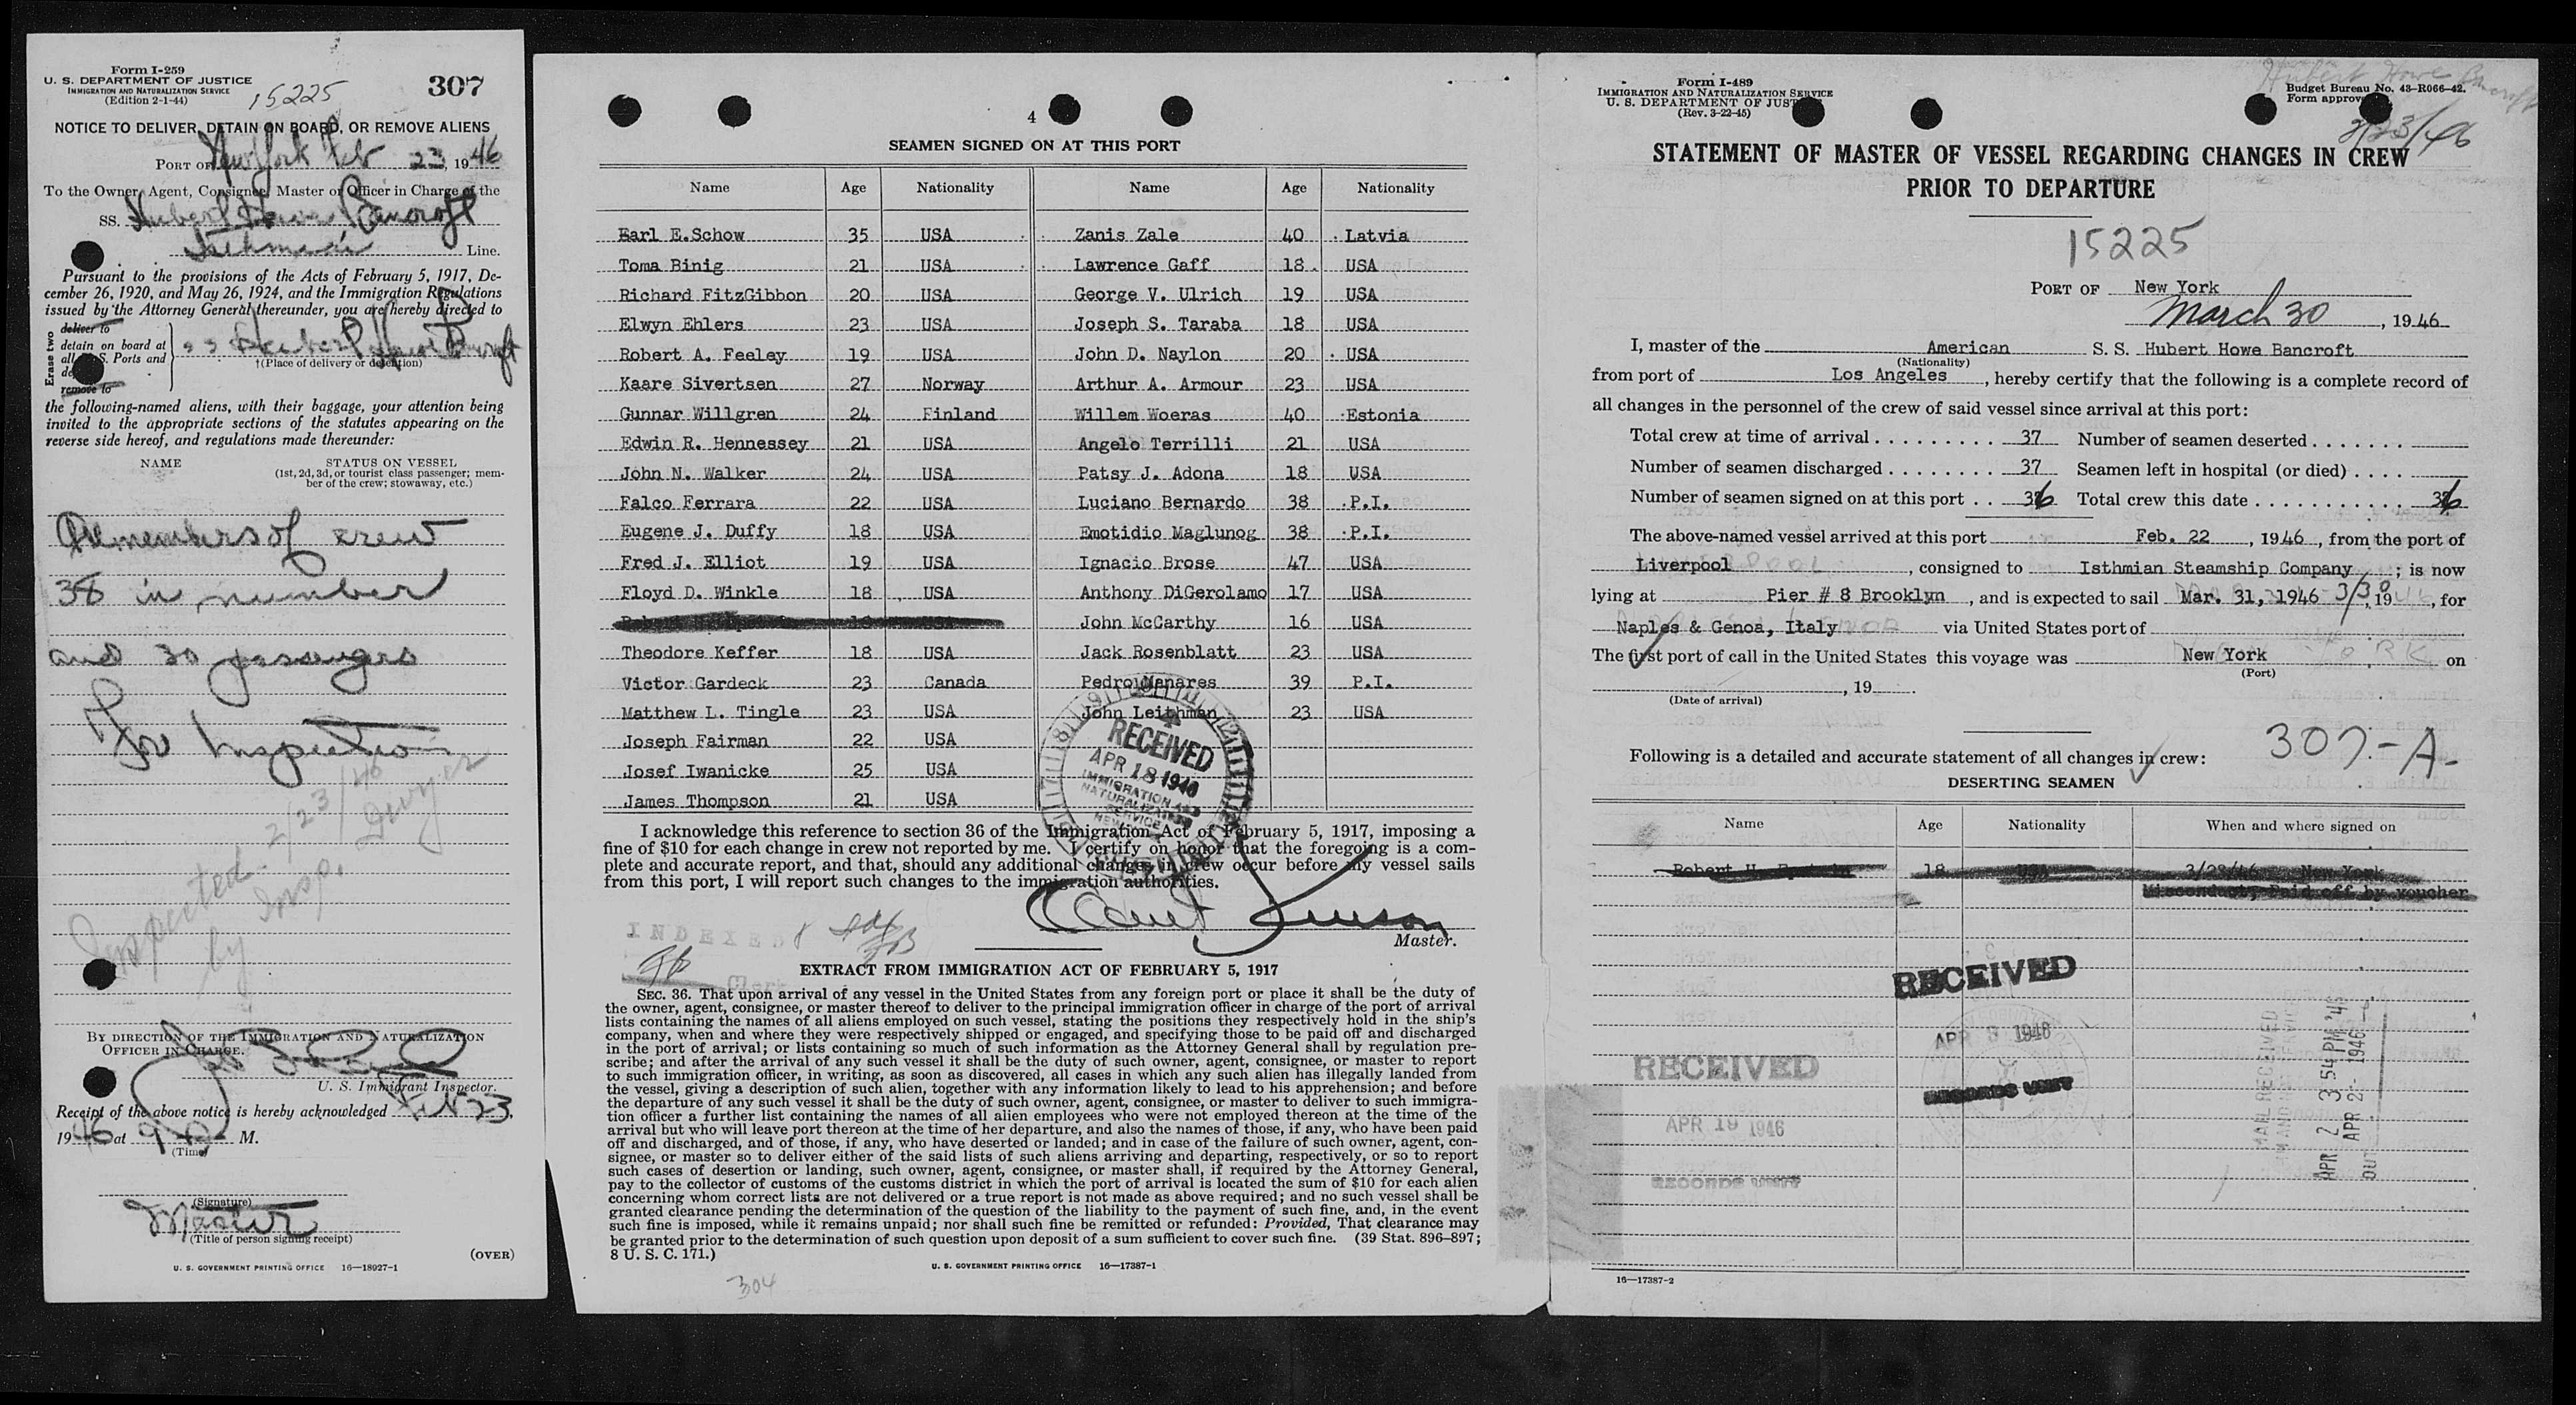 Form I-259
U. S. DEPARTMENT OF JUSTICE
IMMIGRATION AND NATURALIZATION SERVICE
(Edition 2-1-44)
15225
307
NOTICE TO DELIVER, DETAIN ON BOARD, OR REMOVE ALIENS
PORT OF New York Feb 23, 1946
To the Owner, Agent, Consignee, Master or Officer in Charge of the
SS. Hubert Howe Bancroft
Isthmian Line.
Pursuant to the provisions of the Acts of February 5, 1917, De-
cember 26, 1920, and May 26, 1924, and the Immigration Regulations
issued by the Attorney General thereunder, you are hereby directed to
Erase two
deliver to
detain on board at
all U. S. Ports and
remove to
SS Hubert Howe Bancroft
†(Place of delivery or detention)
the following-named aliens, with their baggage, your attention being
invited to the appropriate sections of the statutes appearing on the
reverse side hereof, and regulations made thereunder:
NAME STATUS ON VESSEL
(1st, 2d, 3d, or tourist class passenger; mem-
ber of the crew; stowaway, etc.)
All members of crew
38 in number
and 30 passengers
For Inspection
Inspected 2/23/46
by Insp. Dwyer
BY DIRECTION OF THE IMMIGRATION AND NATURALIZATION
OFFICER IN CHARGE.
U. S. Immigrant Inspector.
Receipt of the above notice is hereby acknowledged Feb 23,
1946 at 9 M.
(Time)
(Signature)
Master
(Title of person signing receipt)
(OVER)
U. S. GOVERNMENT PRINTING OFFICE 16—18927-1
4
SEAMEN SIGNED ON AT THIS PORT
Name Age Nationality Name Age Nationality
Earl E.Schow 35 USA Zanis Zale 40 Latvia
Toma Binig 21 USA Lawrence Gaff 18 USA
Richard FitzGibbon 20 USA George V. Ulrich 19 USA
Elwyn Ehlers 23 USA Joseph S. Taraba 18 USA
Robert A. Feeley 19 USA John D. Naylon 20 USA
Kaare Sivertsen 27 Norway Arthur A. Armour 23 USA
Gunnar Willgren 24 Finland Willem Woeras 40 Estonia
Edwin R. Hennessey 21 USA Angelo Terrilli 21 USA
John N. Walker 24 USA Patsy J. Adona 18 USA
Falco Ferrara 22 USA Luciano Bernardo 38 P.I.
Eugene J. Duffy 18 USA Emotidio Maglunog 38 P.I.
Fred J. Elliot 19 USA Ignacio Brose 47 USA
Floyd D. Winkle 18 USA Anthony DiGerolamo 17 USA
John McCarthy 16 USA
Theodore Keffer 18 USA Jack Rosenblatt 23 USA
Victor Gardeck 23 Canada Pedro Manares 39 P.I.
Matthew L. Tingle 23 USA John Leithman 23 USA
Joseph Fairman 22 USA
Josef Iwanicke 25 USA
James Thompson 21 USA
RECEIVED
APR 18 1946
IMMIGRATION AND
NATURALIZATION
SERVICE
I acknowledge this reference to section 36 of the Immigration Act of February 5, 1917, imposing a
fine of $10 for each change in crew not reported by me. I certify on honor that the foregoing is a com-
plete and accurate report, and that, should any additional changes in crew occur before my vessel sails
from this port, I will report such changes to the immigration authorities.
INDEXED
Master.
Clerk
EXTRACT FROM IMMIGRATION ACT OF FEBRUARY 5, 1917
SEC. 36. That upon arrival of any vessel in the United States from any foreign port or place it shall be the duty of
the owner, agent, consignee, or master thereof to deliver to the principal immigration officer in charge of the port of arrival
lists containing the names of all aliens employed on such vessel, stating the positions they respectively hold in the ship's
company, when and where they were respectively shipped or engaged, and specifying those to be paid off and discharged
in the port of arrival; or lists containing so much of such information as the Attorney General shall by regulation pre-
scribe; and after the arrival of any such vessel it shall be the duty of such owner, agent, consignee, or master to report
to such immigration officer, in writing, as soon as discovered, all cases in which any such alien has illegally landed from
the vessel, giving a description of such alien, together with any information likely to lead to his apprehension; and before
the departure of any such vessel it shall be the duty of such owner, agent, consignee, or master to deliver to such immigra-
tion officer a further list containing the names of all alien employees who were not employed thereon at the time of the
arrival but who will leave port thereon at the time of her departure, and also the names of those, if any, who have been paid
off and discharged, and of those, if any, who have deserted or landed; and in case of the failure of such owner, agent, con-
signee, or master so to deliver either of the said lists of such aliens arriving and departing, respectively, or so to report
such cases of desertion or landing, such owner, agent, consignee, or master shall, if required by the Attorney General,
pay to the collector of customs of the customs district in which the port of arrival is located the sum of $10 for each alien
concerning whom correct lists are not delivered or a true report is not made as above required; and no such vessel shall be
granted clearance pending the determination of the question of the liability to the payment of such fine, and, in the event
such fine is imposed, while it remains unpaid; nor shall such fine be remitted or refunded: Provided, That clearance may
be granted prior to the determination of such question upon deposit of a sum sufficient to cover such fine. (39 Stat. 896–897;
8 U. S. C. 171.)
U. S. GOVERNMENT PRINTING OFFICE 16—17387-1
304
Form I-489
IMMIGRATION AND NATURALIZATION SERVICE
U. S. DEPARTMENT OF JUSTICE
(Rev. 3-22-45)
Hubert Howe Bancroft
Budget Bureau No. 43-R066-42.
Form approved
2/23/46
STATEMENT OF MASTER OF VESSEL REGARDING CHANGES IN CREW
PRIOR TO DEPARTURE
15225
PORT OF New York
March 30, 1946
I, master of the American S. S. Hubert Howe Bancroft
(Nationality)
from port of Los Angeles, hereby certify that the following is a complete record of
all changes in the personnel of the crew of said vessel since arrival at this port:
Total crew at time of arrival . . . . . . . . . 37 Number of seamen deserted . . . . . . .
Number of seamen discharged . . . . . . . . 37 Seamen left in hospital (or died) . . . .
Number of seamen signed on at this port . . 36 Total crew this date . . . . . . . . . . . . 36
The above-named vessel arrived at this port Feb. 22, 1946, from the port of
Liverpool, consigned to Isthmian Steamship Company; is now
lying at Pier # 8 Brooklyn, and is expected to sail Mar. 31, 1946 3/30, 19 , for
Naples & Genoa, Italy via United States port of
The first port of call in the United States this voyage was New York on
(Port)
, 19 .
(Date of arrival)
307-A-
Following is a detailed and accurate statement of all changes in crew:
DESERTING SEAMEN
Name Age Nationality When and where signed on
Robert H. 18 USA 3/23/46 New York
Misconduct, Paid off by voucher
RECEIVED
APR 1946
RECORDS UNIT
RECEIVED
APR 19 1946
RECORDS UNIT
MAIL RECEIVED
APR 2 3 54 PM '46
APR 2 - 1946
16—17387-2